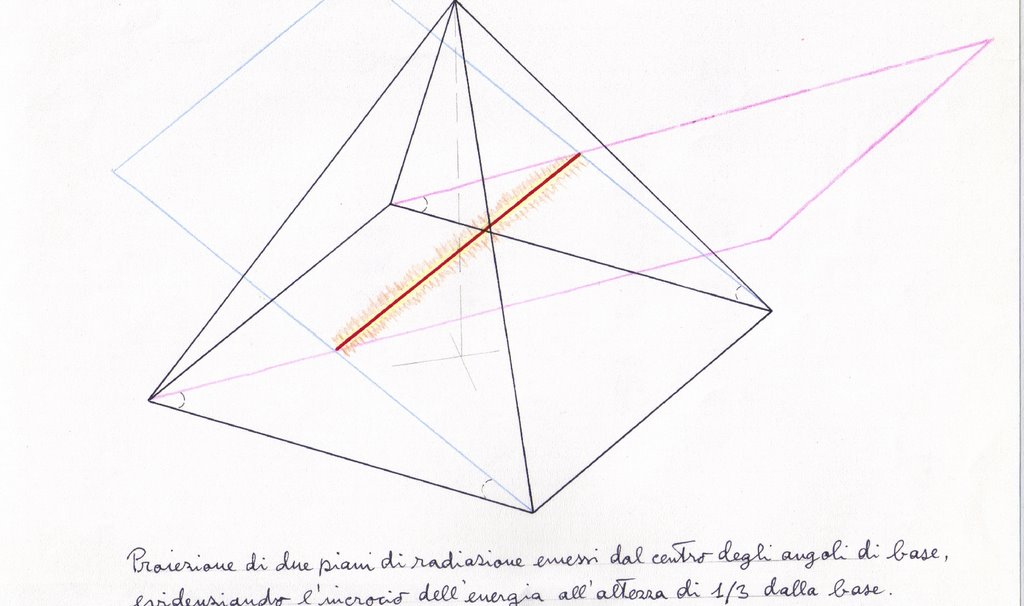 Proiezione di due piani di radiazione emessi dal centro degli angoli di base,
evidenziando l'incrocio dell'energia all'altezza di 1/3 dalla base.